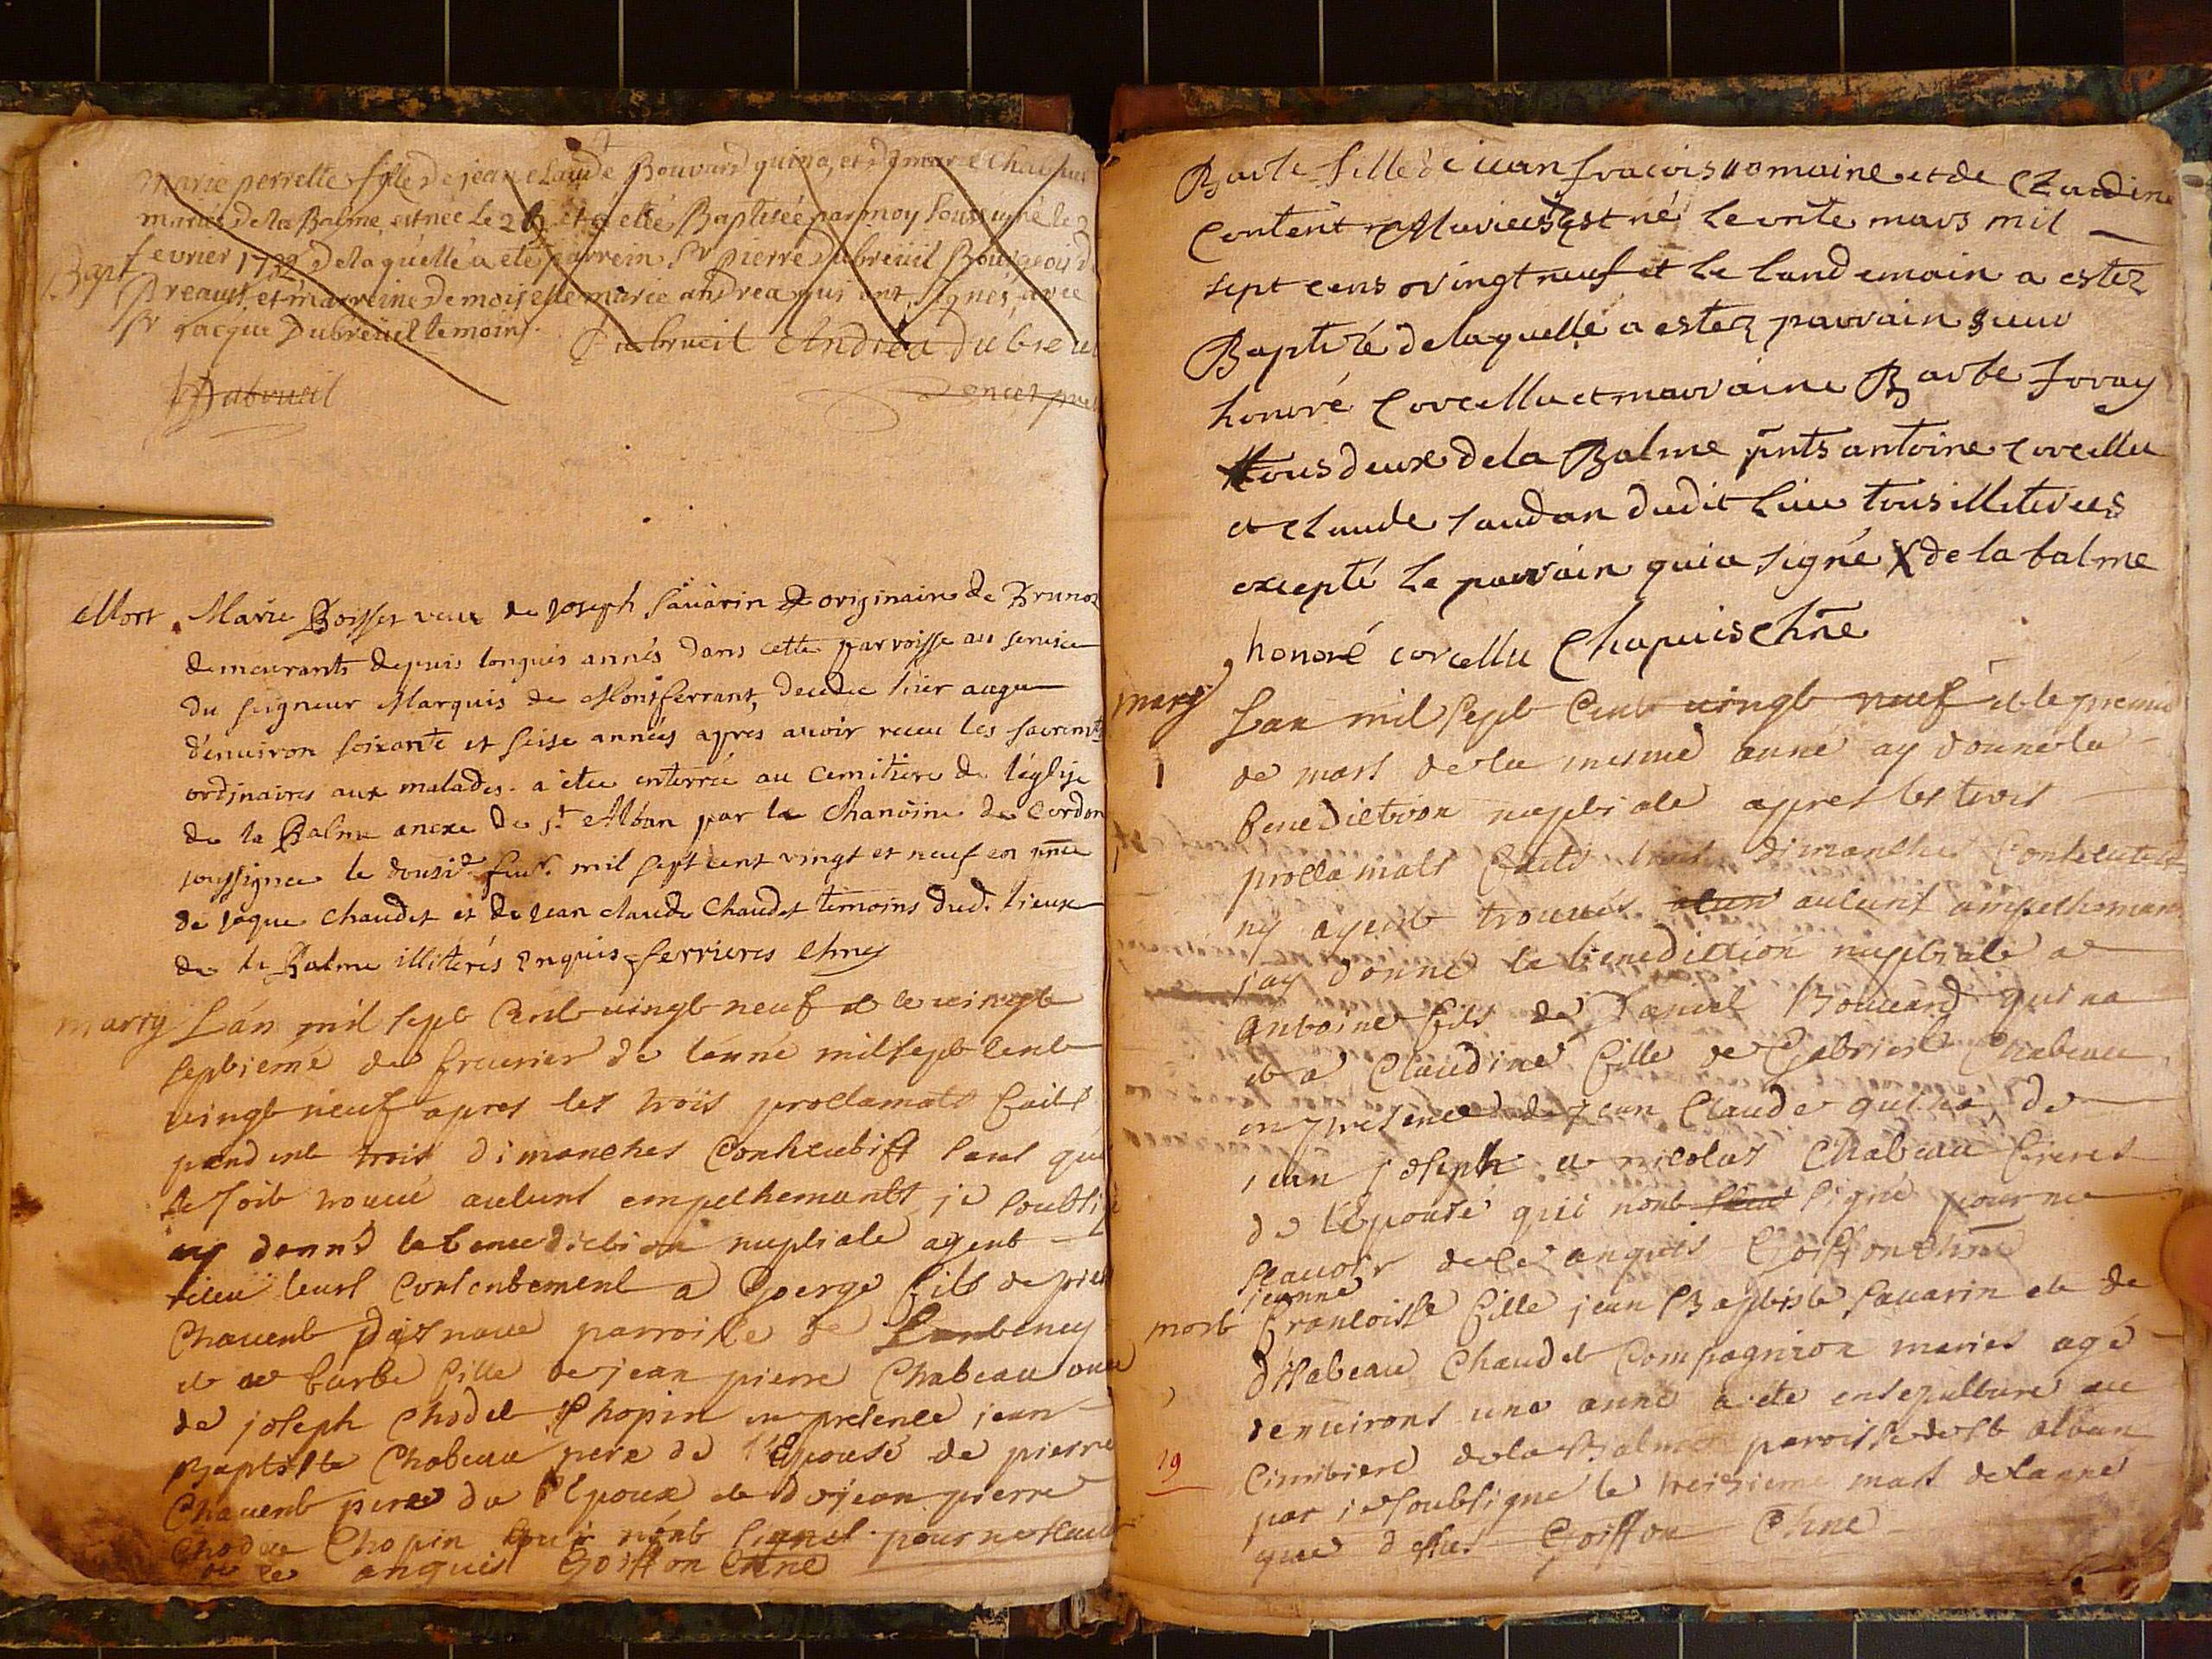 marie perrette fille de jean claude Bouvard quina, et de marie
mariés de la Balme, est née le 2 et a elté Baptisée par moy soussigné le 2
fevrier 1732 de laquelle a eté parrein Sr pierre dubreüil Bourgeois d
Bapt
et marreine demoiselle marie andrea qui ont signes, avec
Sr jacque Dubreüel temoins.
Dubrueil Andréa dubreul
Dabrueil
Mort
Marie Boisset veue de Joseph Sauarin originaire de Brunoz
demeurants depuis longues années dans cette parroisse au seruice
du seigneur Marquis de Montferrant, decedee hier augee
d'enuiron soixante et seise années apres auoir receu les sacremts
ordinaires aux malades. a etee enterrée au Cemitiere de l'église
de la Balme anexe de st Alban par le Chanoine de Cordon
soussignee le dousie feur. mil sept cent vingt et neuf en pnce
de Jaque Chaudet et de Jean claude Chaudet temoins dud. lieux
de la Balme illiterés enquis ferrieres chne
marry
Lán mil sept Cent vingt neuf et le vingt
septiemé de freurier de l'énné mil sept cent
vingt neuf apres les trois procllamats fait
pendent trois dimanches Conseubift sans que
se soit trouué auluns empelhements je soubsi
ay donné la benediction nuptiale ayent
receu leurs Consentement a George fils de pier
Chauent parroisse de
et a barbe fille de jean pierre Chabeau
de joseph Chodet Chopin en presence jean
Baptiste Chabeau pere de l'Epousé de pierre
Chauent pere du l'Epoux et de jean pierre
Chodet Chopin qui n'ont signes pour ne scau
de ce anquis Goiffon Chne
Barbe fille de iean fracois iomaine et de Claudine
Content Mariees est né le onte mars mil
sept cens vingt neuf et le landemain a estez
Baptizé de laquelle a estez parrain sieur
honoré Corcellu et marraine Barbe Joray
tous deux de la Balme pnts antoine corcellu
et claude saudan dudit lieu tous illeteres
excepté le parrain qui a signé X de la balme
honoré corcellu Chapuis Chne
mary
1
Lan mil sept Cent vingt neuf et le premie
de mars de la mesme anné ay donné la
benediction nuptiale apres les trois
procllamats faits trois dimanches Conseeutift
ny ayent trouués aulunt ampelhemant
j'ay donné la benediction nuptiale a
antoine fils de Daniel Bouuard quina
et a Claudine fille de Gabriel Chabeau
en presence de jean Claude quina, de
jean joseph et nicolas Chabeau freres
de l'épousé qui n'ont signé pour ne
scauoir de ce anquis Goiffon Chne
mort
jeanne
francoisse fille jean Baptiste sauarin et de
d'isabeau Chaudet Compagnion maries agé
denuirons une anné a ete ensepulturé au
19
Cimitiere de la Balme parroisse de st alban
par je soubsigné le treisieme mars de lanné
que dessus Goiffon Chne